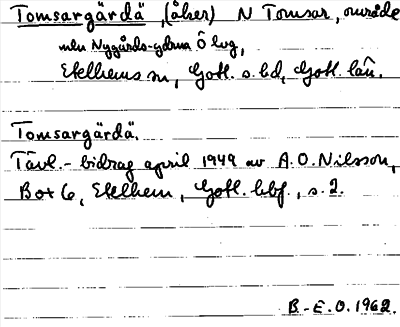 Tomsargärdä, (åker) N Tomsar, område
mln Nygårds-ydrna Ô lvg,
Etelhems sn, Gotl. s. hd, Gotl. län.
Tomsargärdä.
Tävl.-bidrag april 1949 av A.O. Nilsson,
Box 6, Etelhem, Gotl. hbf., s. 2.
B.-E.O. 1962.